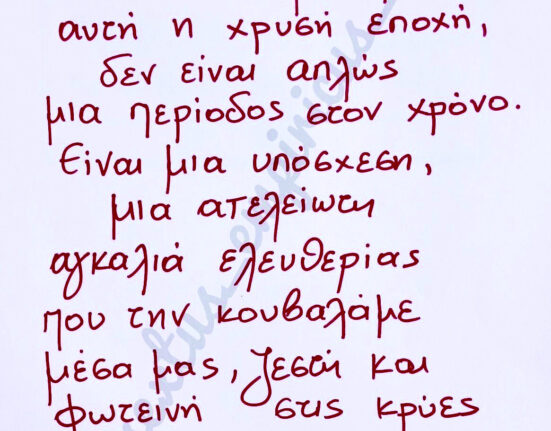 αυτή η χρυσή εποχή,
δεν είναι απλώς
μια περίοδος στον χρόνο.
Είναι μια υπόσχεση,
μια ατελείωτη
αγκαλιά ελευθερίας
που την κουβαλάμε
μέσα μας, ζεστή και
φωτεινή στις κρύες